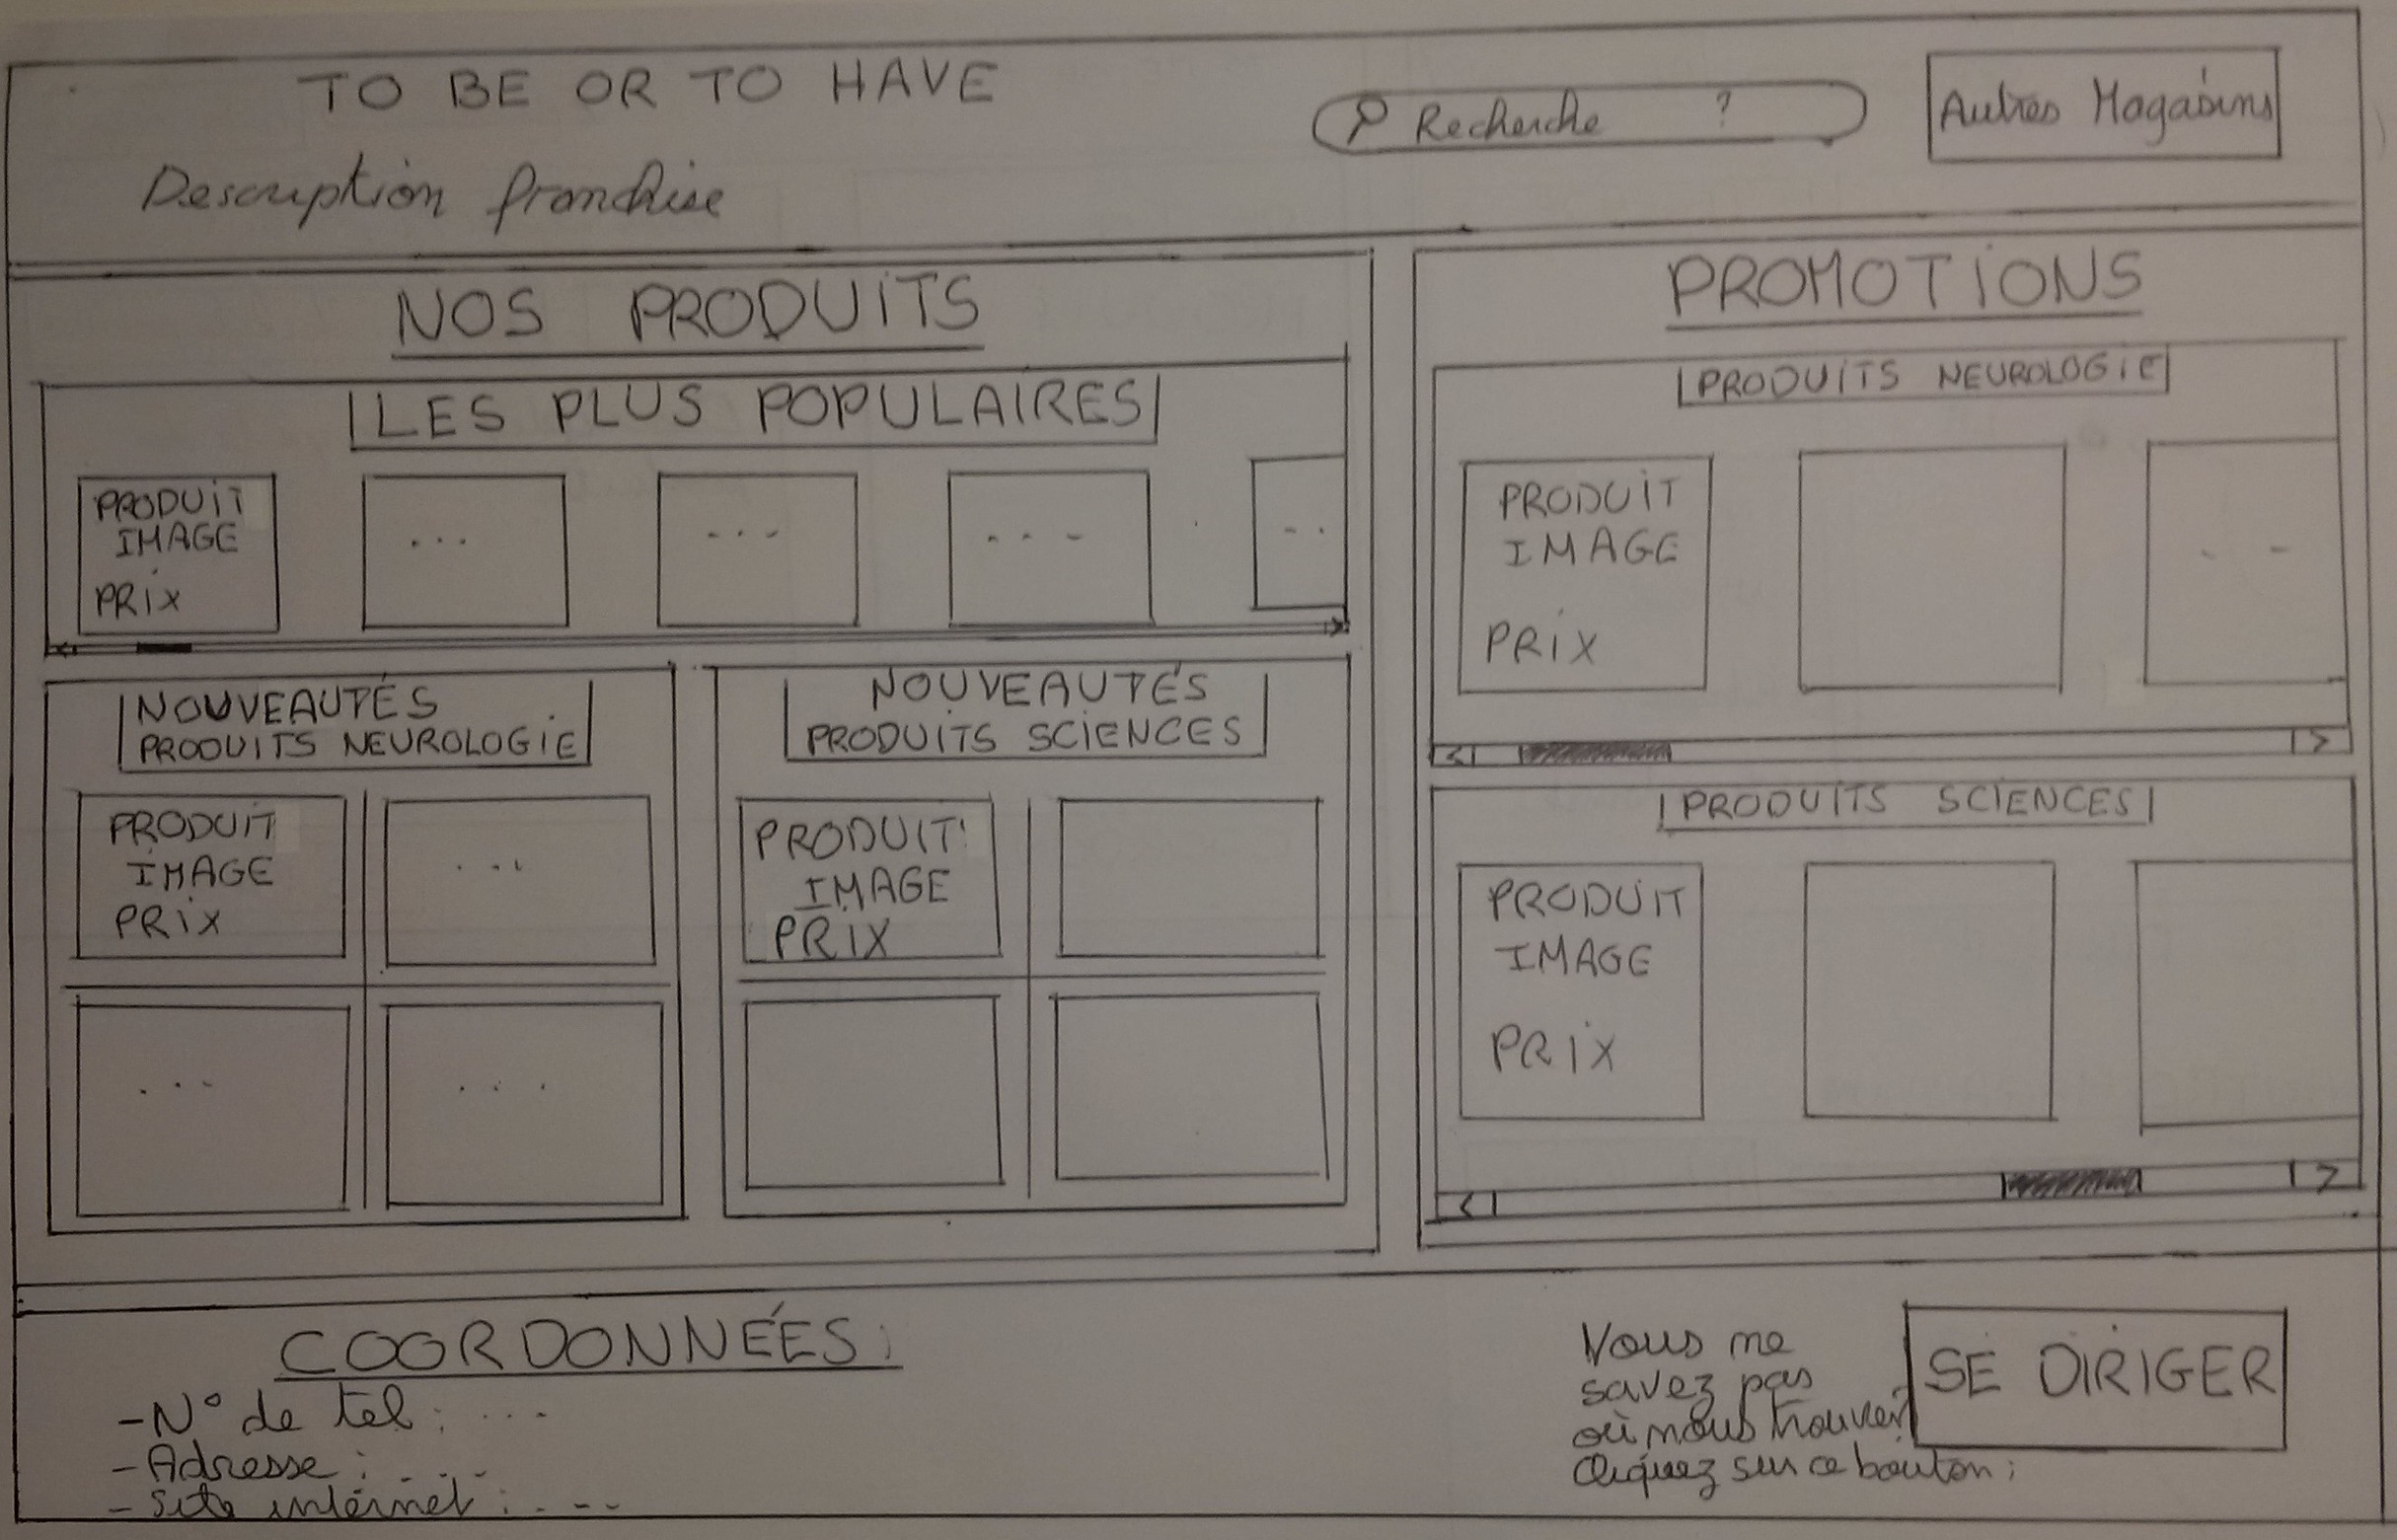 TO BE OR TO HAVE
Recherche ?
Autres Magasins
Description franchise
NOS PRODUiTS
LES PLUS POPULAIRES
PRODUiT
IMAGE
PRiX
...
...
...
..
NOUVEAUTÉS
PRODUITS NEUROLOGiE
PRODUIT
IMAGE
PRiX
...
...
...
NOUVEAUTÉS
PRODUiTS SCiENCES
PRODUIT
IMAGE
PRIX
PROMOTiONS
PRODUiTS NEUROLOGiE
PRODUiT
IMAGE
PRiX
..
< >
PRODUITS SCIENCES
PRODUIT
IMAGE
PRiX
< >
COORDONNÉES:
-N° de tel: ...
-Adresse: ...
-Site internet: ...
Vous ne
savez pas
où nous trouver
Cliquez sur ce bouton:
SE DiRIGER